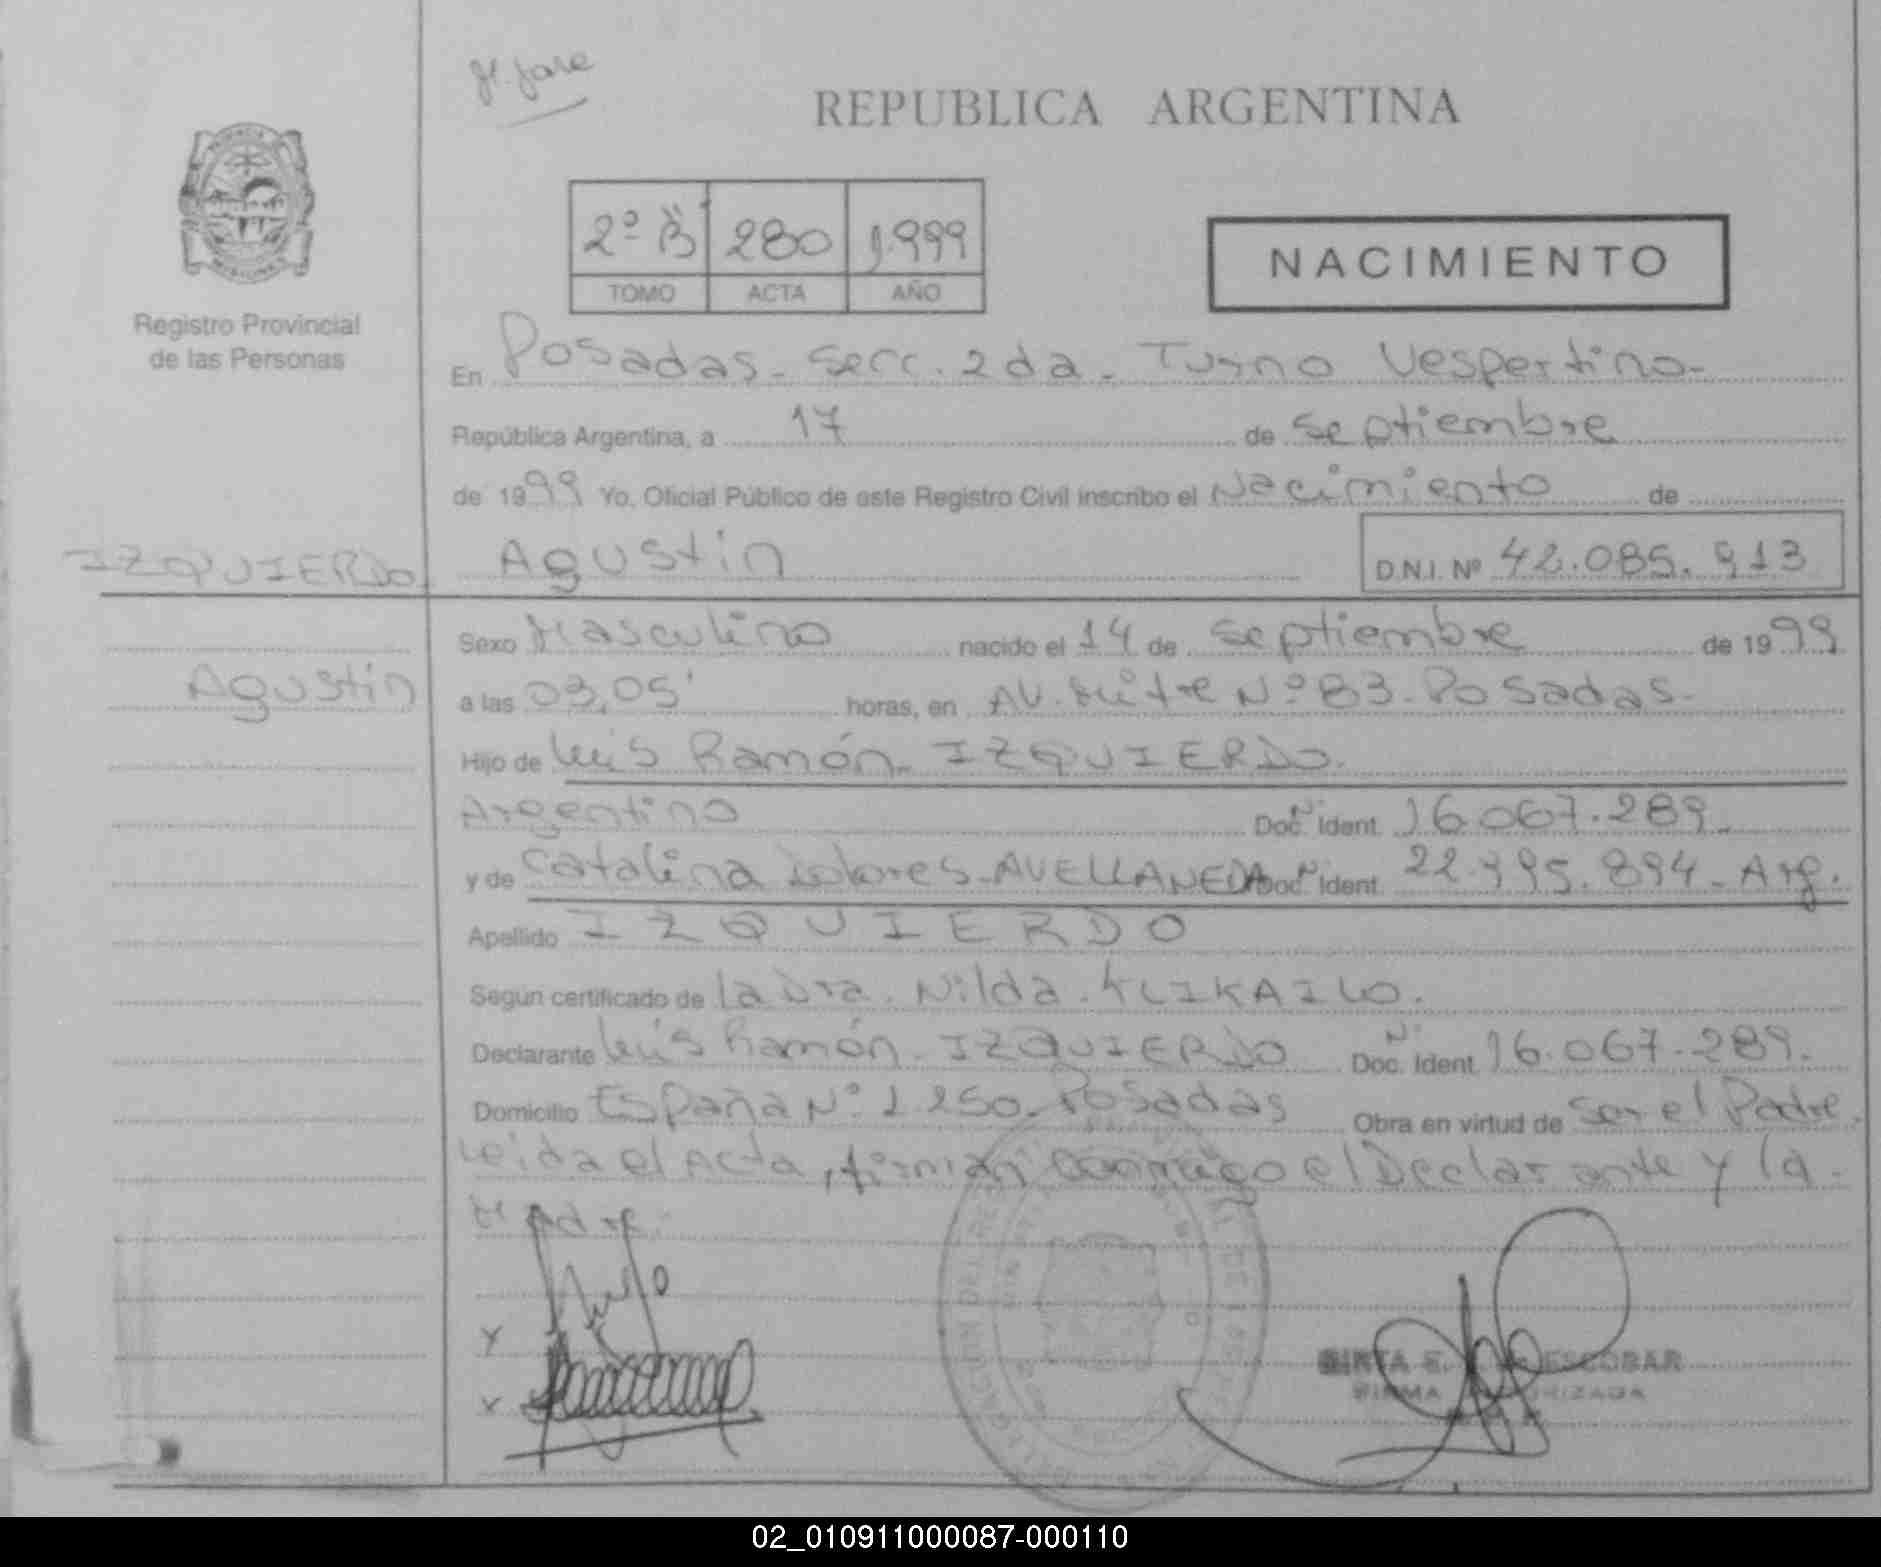 REPUBLICA ARGENTINA
2º "B" 280 1.999
TOMO ACTA AÑO
NACIMIENTO
Registro Provincial
de las Personas
En Posadas - Secc. 2da - Turno Vespertino -
República Argentina, a 17 de Septiembre
de 1999 Yo, Oficial Público de este Registro Civil inscribo el Nacimiento de
IZQUIERDO Agustin D.N.I. Nº 42.085.913
Sexo Masculino nacido el 14 de Septiembre de 1999
Agustin
a las 03,05' horas, en AV. Mitre Nº 83 - Posadas -
Hijo de Luis Ramón - IZQUIERDO.
Argentino Doc. Nº Ident. 16.067.289 -
y de Catalina Dolores - AVELLANEDA Doc. Nº Ident. 22.995.894 - Arg.
Apellido IZQUIERDO
Según certificado de La Dra. Nilda. KLIKAILO.
Declarante Luis Ramón - IZQUIERDO Doc. Nº Ident. 16.067.289.
Domicilio España Nº 1.250 - Posadas Obra en virtud de Ser el Padre.
Leida el Acta, firman conmigo el Declarante y la
Madre.
ESCOBAR
FIRMA AUTORIZADA
02_010911000087-000110